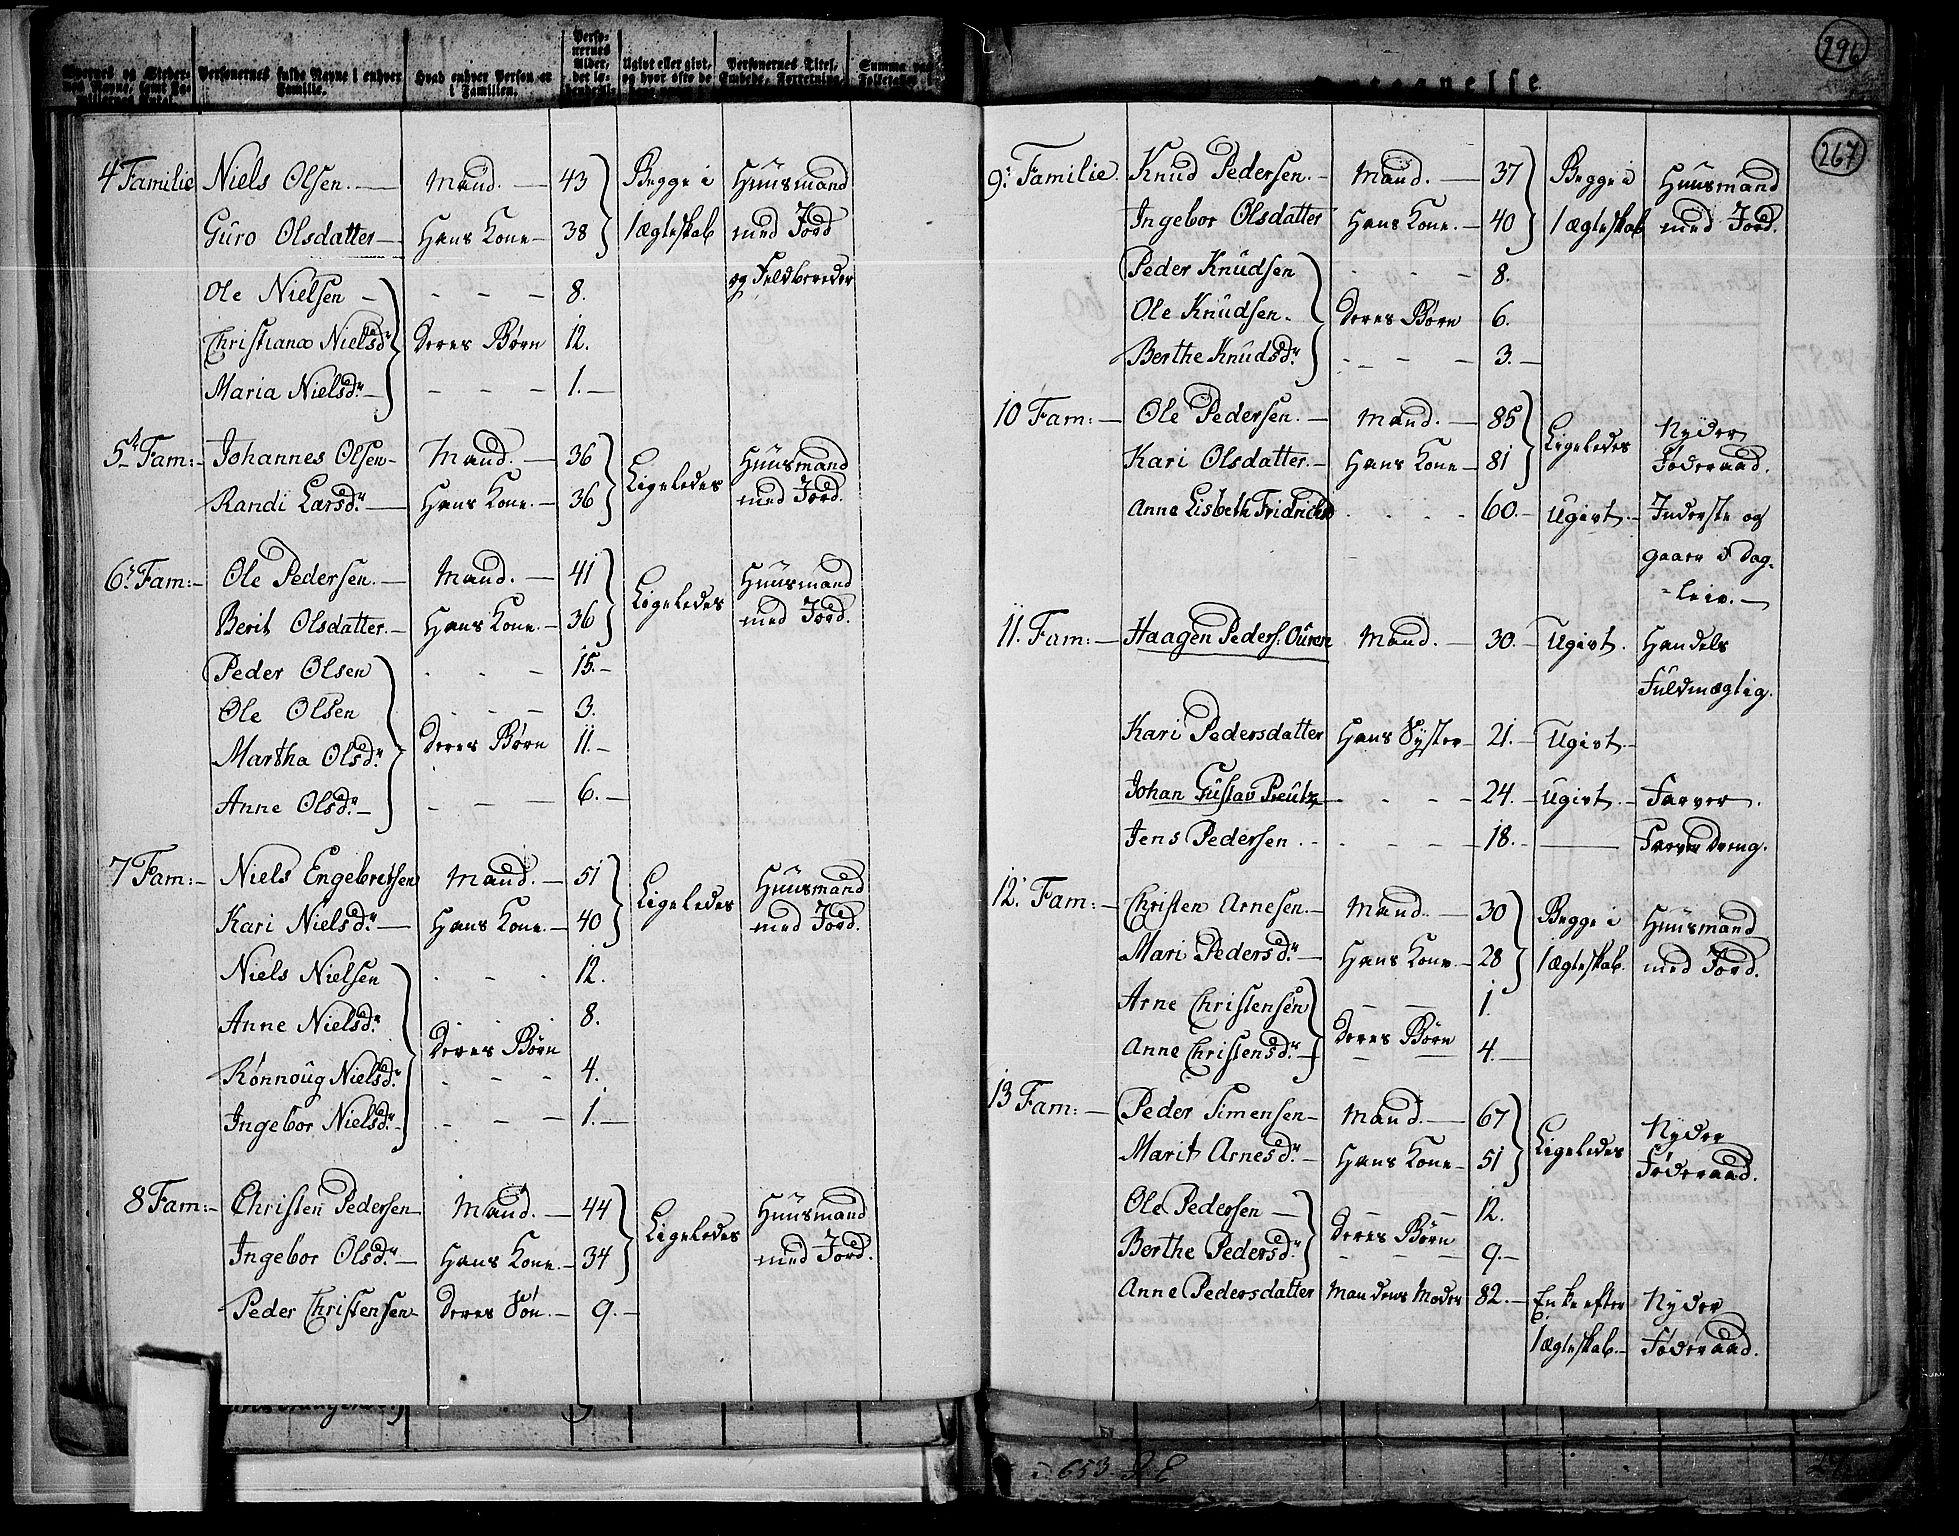 Personernes fulde Navne i enhver Familie.
Hvad enhver Person er i Familien.
Personernes Alder, det løbende
Ugivt eller givt, og hvor ofte de
Personernes Titel, Embede, Forretning,
Summa
296
267
4 Familie Niels Olsen. — Mand. — 43 Begge i Huusmand
Guro Olsdatter — Hans Kone — 38 1 ægteskab med Jord
og Feldbereder
Ole Nielsen — — — — 8.
Christiana Nielsdr Deres Børn 12.
Maria Nielsdr — — — — 1. —
5t Fam: — Johannes Olsen — Mand. — 36 Ligeledes Huusmand
Randi Larsdr — Hans Kone. — 36 med Jord.
6. Fam: — Ole Pedersen. — Mand. — 41 Ligeledes Huusmand
Berit Olsdatter. — Hans Kone. — 36 med Jord.
Peder Olsen - - - 15. —
Ole Olsen - - - 3.
Martha Olsdr Deres Børn 11. —
Anne Olsdr — — — — 6. —
7 Fam: — Niels Engebretsen Mand. — 51 Ligeledes Huusmand
Kari Nielsdr — Hans Kone. — 40 med Jord.
Niels Nielsen - - - 12.
Anne Nielsdr - - - 8.
Deres Børn
Rønnoug Nielsdr - - - 4.
Ingebor Nielsdr — - — — 1. —
8 Fam: — Christen Pedersen — Mand. — 44 Ligeledes Huusmand
Ingebor Olsdr — Hans Kone. — 34 med Jord.
Peder Christensen — Deres Søn. — 9. —
9. Familie. Knud Pedersen. — Mand. — 37 Begge i Huusmand
Ingebor Olsdatter Hans Kone. — 40 1 ægteskab med Jord.
Peder Knudsen - - - 8.
Ole Knudsen. Deres Børn 6.
Berthe Knudsdr - - — 3. —
10 Fam: — Ole Pedersen. — Mand. — 85 Ligeledes Nyder
Kari Olsdatter. — Hans Kone — 81 Føderaad.
Anne Lisbeth Fridrichsd - - - 60. — Ugivt. — Inderste og
gaaer i Dag-
-leie. —
11. Fam: — Haagen Peders. Ouren Mand. — 30. — Ugivt. Handels
Fuldmægtig.
Kari Pedersdatter Hans Syster — 21. — Ugivt. —
Johan Gustav Preutz — - - - 24. — Ugivt. — Farver.
Jens Pedersen - - - - 18. — — Farver Dreng.
12. Fam: — Christen Arnesen. — Mand. — 30 Begge i Huusmand
Mari Pedersdr — Hans Kone. — 28 1 ægteskab. med Jord.
Arne Christensen — — 1.
Deres Børn
Anne Christensdr — — — 4. —
13 Fam: — Peder Simensen — Mand. — 67 Ligeledes Nyder
Marit Arnesdr — Hans Kone — 51 Føderaad.
Ole Pedersen — — — 12.
Deres Børn
Berthe Pedersdr - - - 9. —
Anne Pedersdatter Mandens Moder 82. — Enke efter Nyder
1 ægteskab. — Føderaad.
653